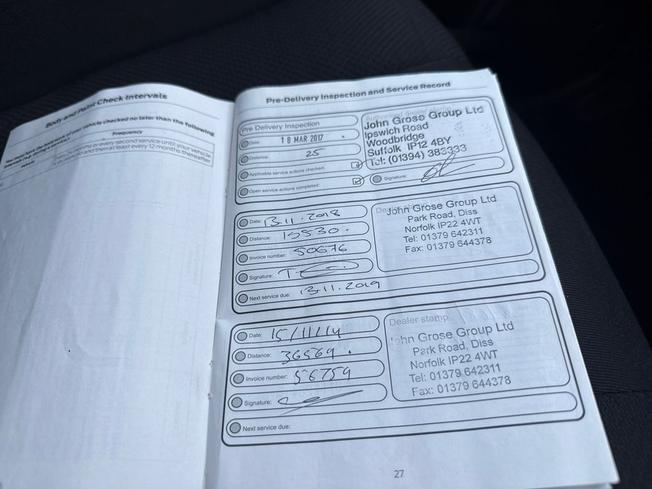 Body and Paint Check Intervals
Frequency
Pre-Delivery Inspection and Service Record
Pre Delivery Inspection
Date: 18 MAR 2017
Distance: 25
Applicable service actions checked:
Open service actions completed:
John Grose Group Ltd
Ipswich Road
Woodbridge
Suffolk IP12 4BY
Tel: (01394) 383333
Signature:
Date: 13.11.2018
Distance: 15530.
Invoice number: 50676
Signature:
Next service due: 13.11.2019
John Grose Group Ltd
Park Road, Diss
Norfolk IP22 4WT
Tel: 01379 642311
Fax: 01379 644378
Date: 15/11/19
Distance: 36569.
Invoice number: 56759
Signature:
Next service due:
Dealer stamp
John Grose Group Ltd
Park Road, Diss
Norfolk IP22 4WT
Tel: 01379 642311
Fax: 01379 644378
27